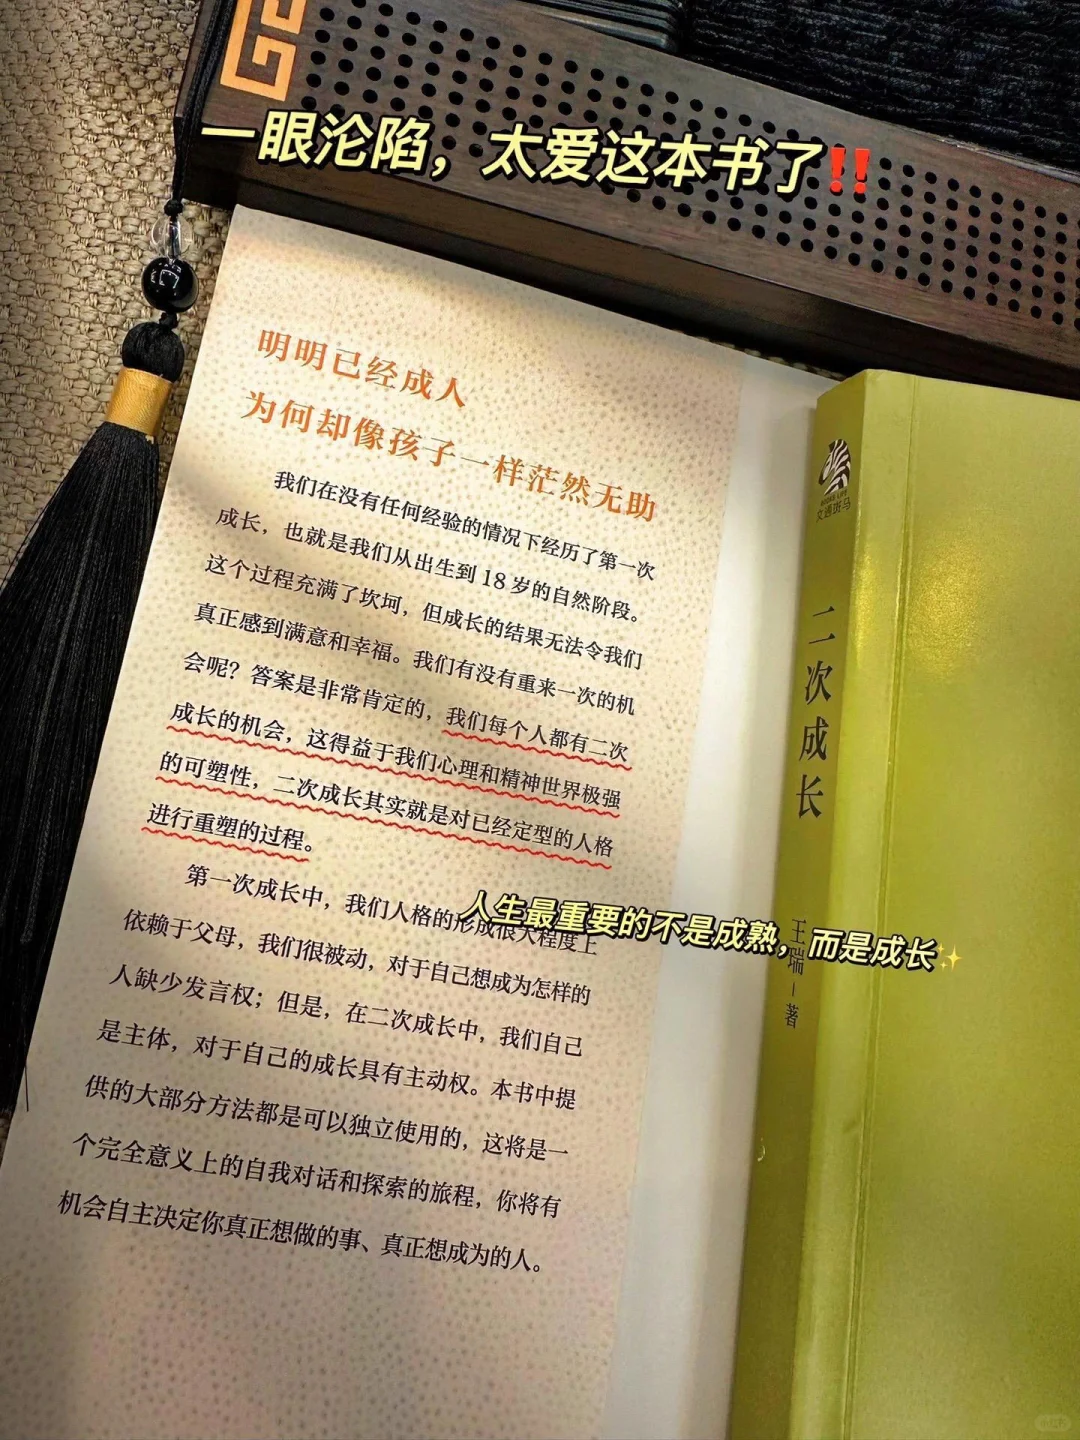 一眼沦陷，太爱这本书了‼️
明明已经成人
为何却像孩子一样茫然无助
我们在没有任何经验的情况下经历了第一次
成长，也就是我们从出生到 18 岁的自然阶段。
这个过程充满了坎坷，但成长的结果无法令我们
真正感到满意和幸福。我们有没有重来一次的机
会呢？答案是非常肯定的，我们每个人都有二次
成长的机会，这得益于我们心理和精神世界极强
的可塑性，二次成长其实就是对已经定型的人格
进行重塑的过程。
第一次成长中，我们人格的形成很大程度上
依赖于父母，我们很被动，对于自己想成为怎样的
人缺少发言权；但是，在二次成长中，我们自己
是主体，对于自己的成长具有主动权。本书中提
供的大部分方法都是可以独立使用的，这将是一
个完全意义上的自我对话和探索的旅程，你将有
机会自主决定你真正想做的事、真正想成为的人。
人生最重要的不是成熟，而是成长✨
文通斑马
二次成长
王瑞 — 著